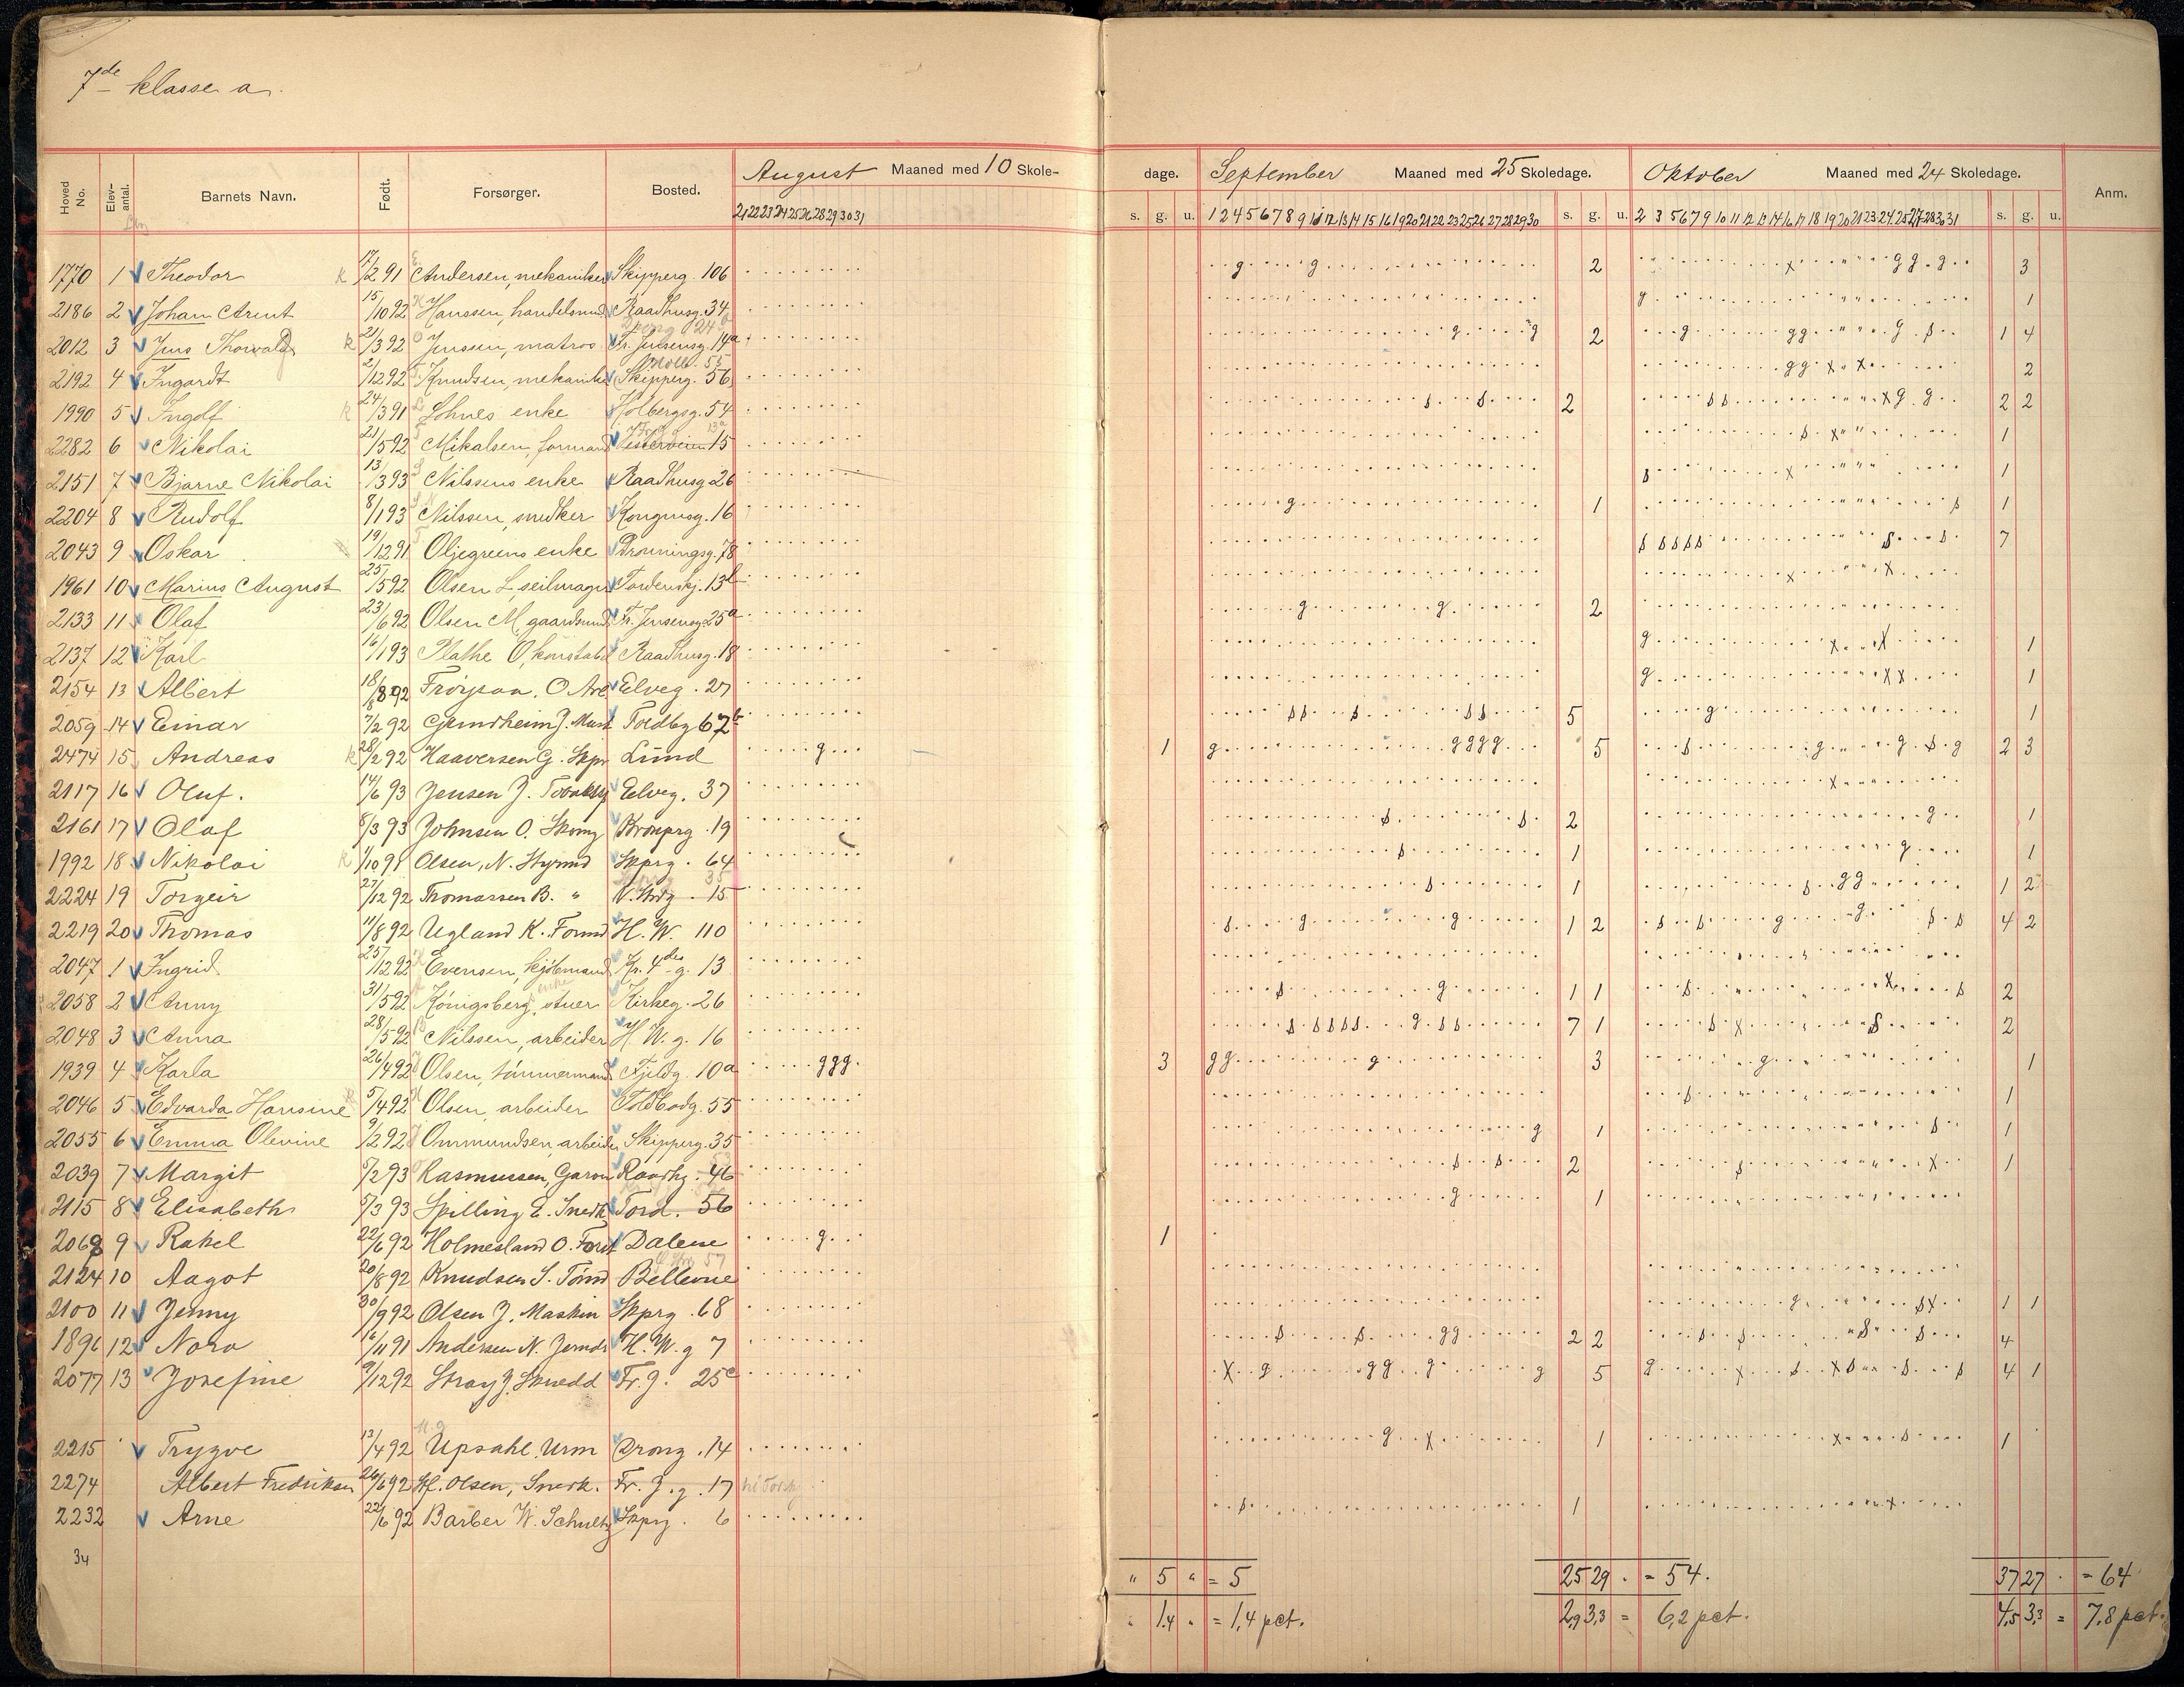 7de klasse a.
Hoved No. Elev-antal. Barnets Navn. Født. Forsørger. Bosted. August Maaned med 10 Skole- dage. September Maaned med 25 Skoledage. Oktober Maaned med 24 Skoledage. Anm.
21 22 23 24 25 26 28 29 30 31 s. g. u. 1 2 4 5 6 7 8 9 11 12 13 14 15 16 19 20 21 22 23 25 26 27 28 29 30 s. g. u. 2 3 5 6 7 9 10 11 12 13 14 16 17 18 19 20 21 23 24 25 27 28 30 31 s. g. u.
1770 1 Theodor k 17/2 91 Andersen, mekaniker Skipperg. 106 g g 2 x g g g 3
2186 2 Johan Arent 15/10 92 Hanssen, handelsmd Raadhusg. 34 g 1
2012 3 Jens Thorvald k 21/3 92 Jenssen, matros Fr. Jensensg. 14a g g 2 g g g g s 1 4
2192 4 Ingardt 2/12 92 Knudsen, mekanike Skipperg. 56 g g x x 2
1990 5 Ingolf k 24/3 91 Lohnes enke Holbergsg. 54 s s 2 s s x g g 2 2
2282 6 Nikolai 21/5 92 Mikalsen, formand Vesterveien 15 s x 1
2151 7 Bjarne Nikolai 13/3 93 Nilssens enke Raadhusg 26 s x 1
2204 8 Rudolf 8/1 93 Nilssen, snedker Kongensg. 16 g 1 s 1
2043 9 Oskar 19/12 91 Oljegreens enke Dronningsg. 78 s s s s s s s 7
1961 10 Marius August 25/5 92 Olsen L, seilmager Tordenskj. 13b x x
2133 11 Olaf 23/6 92 Olsen M, gaardsmd Fr. Jensensg 25a g g 2
2137 12 Karl 16/1 93 Plathe O, konstabel Raadhusg. 18 g x x 1
2154 13 Albert 18/8 92 Frøysaa, O Arb Elveg. 27 g x x 1
2059 14 Einar 7/2 92 Gjemdheim J. Murst Toldbg 67b s s s s s 5 g 1
2474 15 Andreas k 28/2 92 Haaversen G. Skpr Lund g 1 g g g g g 5 s g g s g 2 3
2117 16 Oluf. 14/6 93 Jensen J. Elveg. 37 x
2161 17 Olaf 8/3 93 Johnsen O. Skomg Kronprg. 19 s s 2 g 1
1992 18 Nikolai k 1/10 91 Olsen, N. Styrmd Skprg. 64 s 1 g 1
2224 19 Torgeir 27/12 92 Thomassen B. " V. Strdg. 15 s 1 s g g 1 2
2219 20 Thomas 11/8 92 Ugland K. Formd H. W. 110 s g g 1 2 s s g g s s 4 2
2047 1 Ingrid 25/12 92 Evensen, kjøbmand Kr. 4des g. 13
2058 2 Anny 31/5 92 Königsberg, stuer enke Kirkeg. 26 s g 1 1 s x s 2
2048 3 Anna 28/5 92 Nilssen, arbeider H. W. g. 16 s s s s s g s s 7 1 s x s 2
1939 4 Karla 26/4 92 Olsen, tømmermand Fjeldg. 10a g g g 3 g g g 3 g 1
2046 5 Edvarda Hansine 5/4 92 Olsen, arbeider Toldbodg. 55 s 1
2055 6 Emma Olevine 9/2 92 Ommundsen, arbeider Skipperg. 35 g 1 s 1
2039 7 Margit 5/2 93 Rasmussen, Garver Raadhg. 46 s s 2 s x 1
2115 8 Elisabeth 5/3 93 Spilling E. Snedk Tord. 56 g 1
2068 9 Rakel 22/6 92 Holmesland O. Forst Dalene g 1
2124 10 Aagot 20/8 92 Knudsen S. Tømd Bellevue
2100 11 Jenny 30/9 92 Olsen J. Maskin Skprg. 68 g s x 1 1
1896 12 Nora 16/11 91 Andersen N. Jernds H. W. g 7 s s g g 2 2 s s s s 4
2077 13 Josefine 9/12 92 Stray J. Skredd Fr. J. 25c x g g g g g 5 g x s x s s s 4 1
2215 Trygve 13/4 92 Upsahl, Urm Drong. 14 g x 1 x s 1
2274 Albert Fredriksen 26/6 92 Kf. Olsen, Snedk. Fr. J. g. 17
2232 Arne 22/6 92 Barber W. Schultz Skprg. 6 s 1 x
34
" 5 " = 5 25 29 . = 54. 37 27 . = 64
" 1.4 " = 1,4 pct. 2,9 3,3 = 6,2 pct. 4,5 3,3 = 7,8 pct.